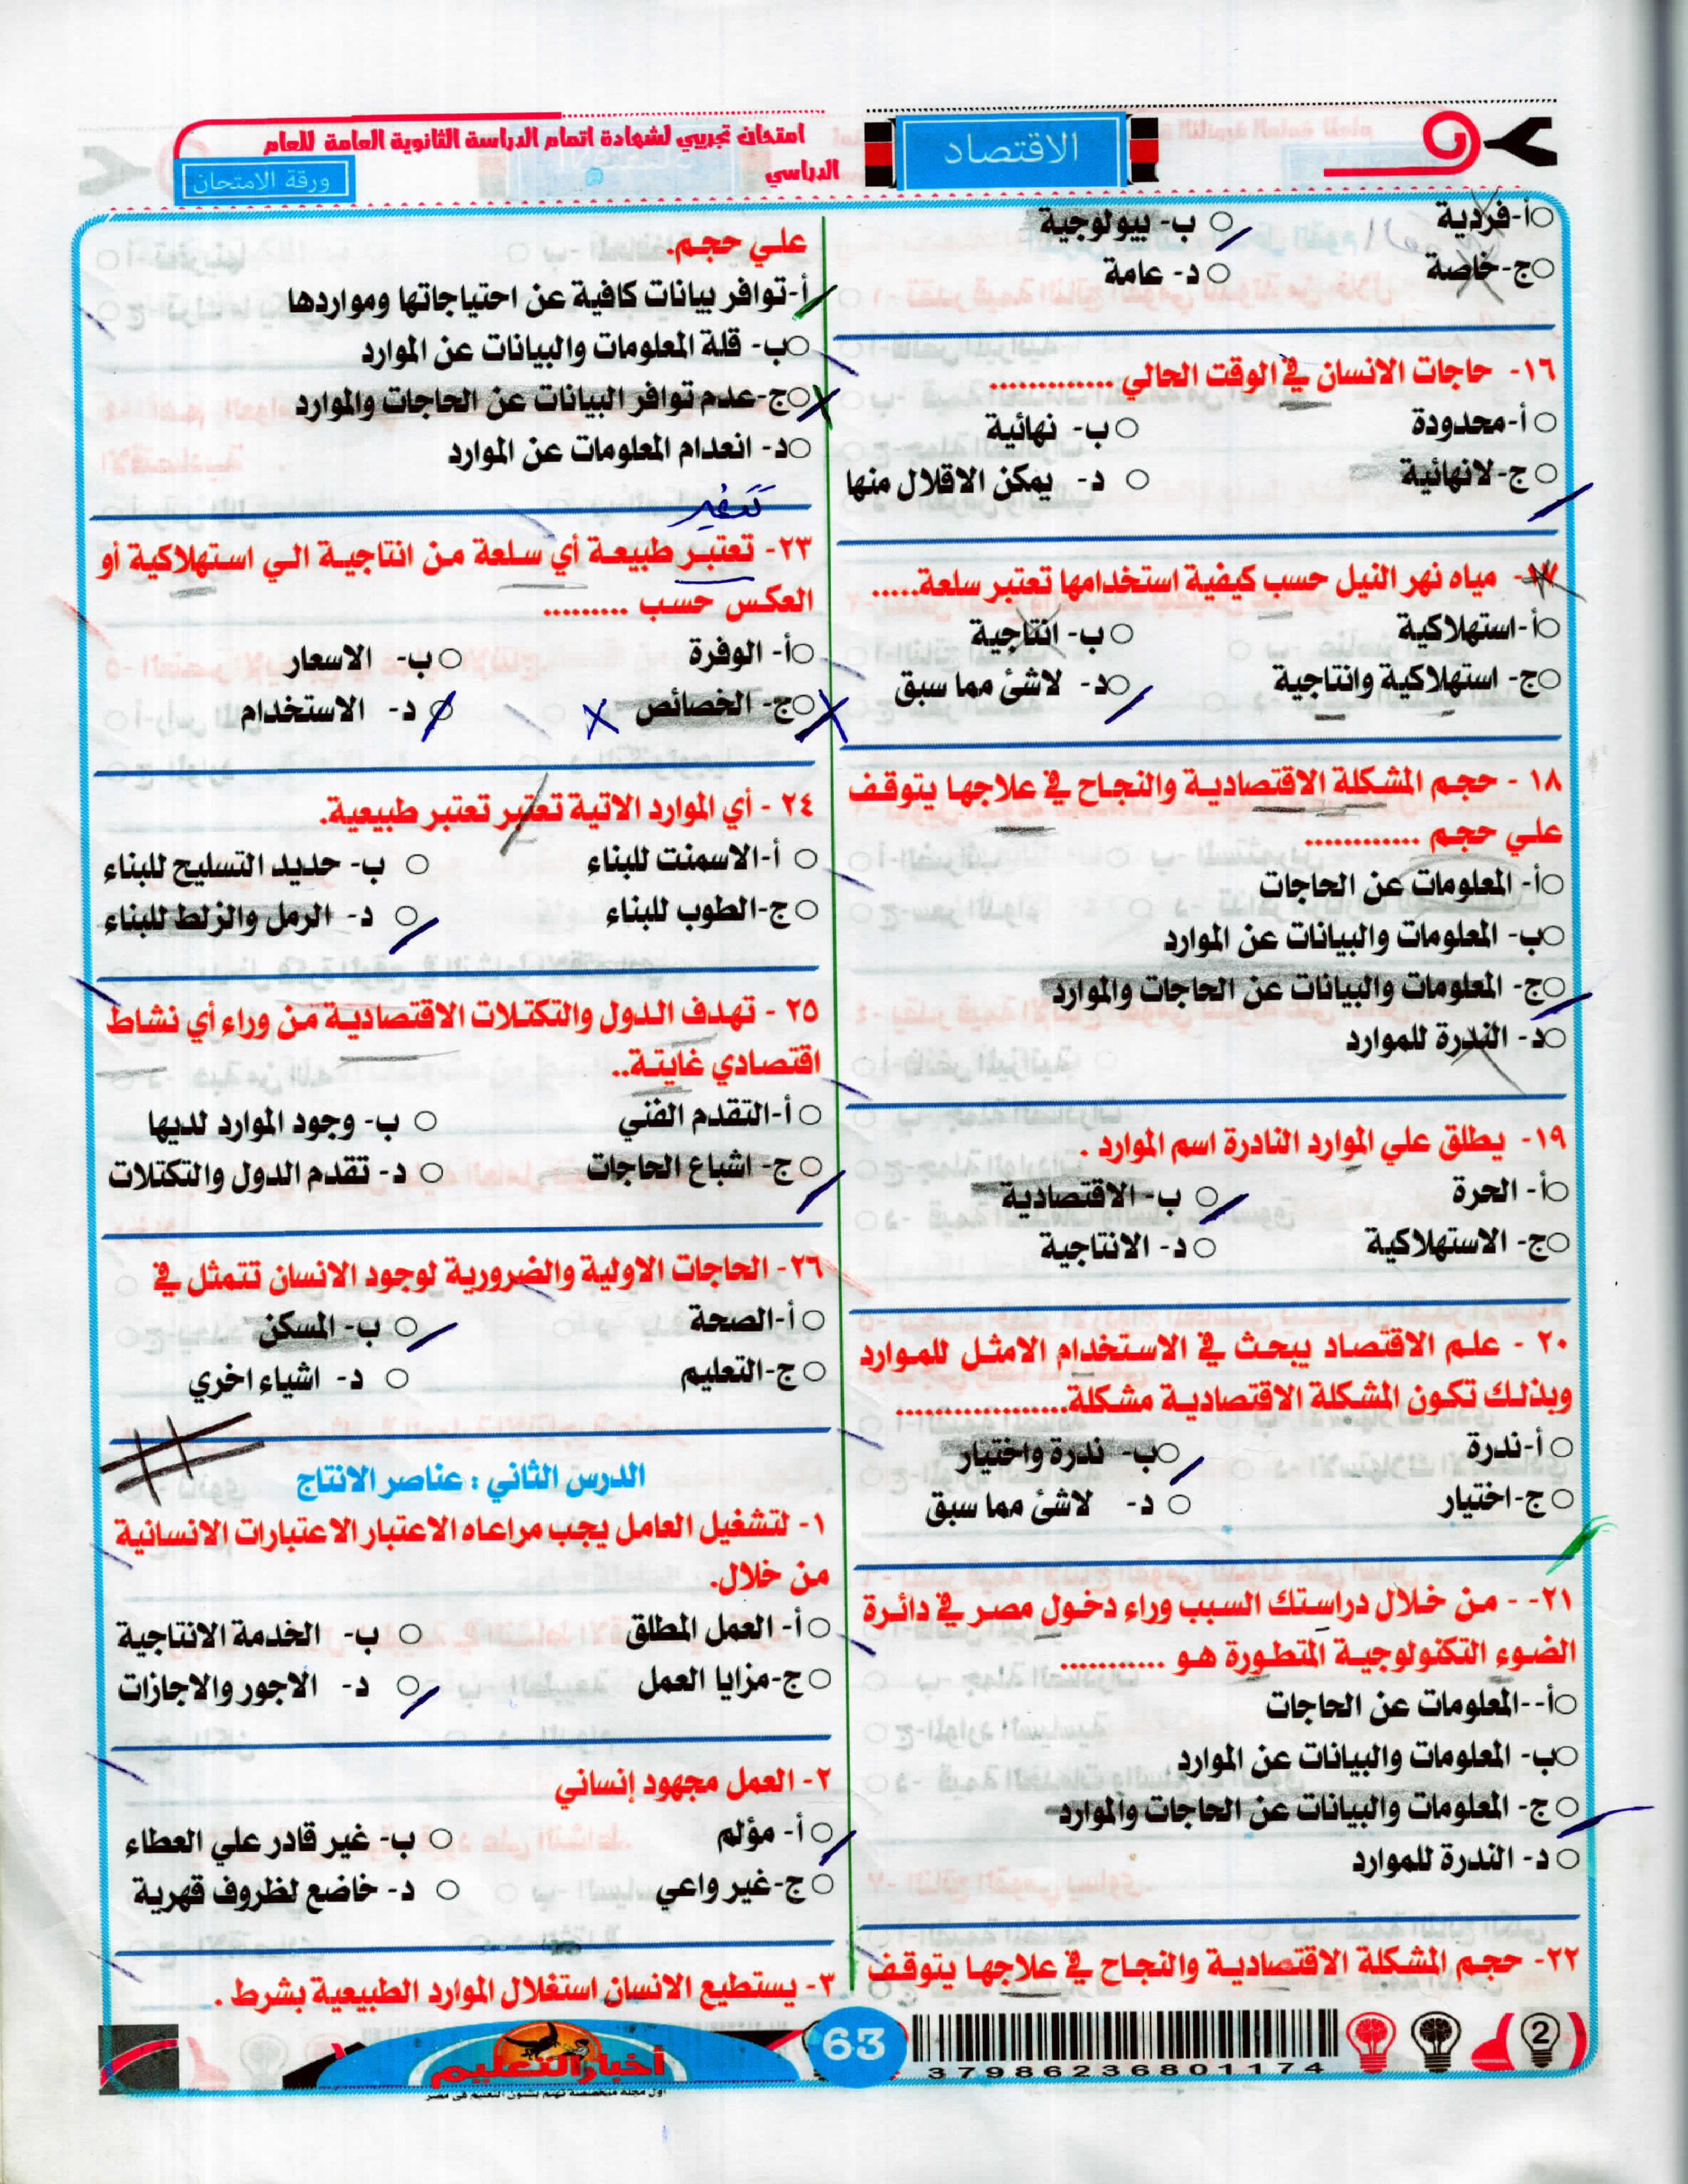 الاقتصاد
امتحان تجريبي لشهادة اتمام الدراسة الثانوية العامة للعام
الدراسي
ورقة الامتحان
أ-فردية
ب- بيولوجية
ج-خاصة
د- عامة
١٦- حاجات الانسان في الوقت الحالي .............
أ-محدودة
ب- نهائية
ج-لانهائية
د- يمكن الاقلال منها
١٧- مياه نهر النيل حسب كيفية استخدامها تعتبر سلعة.....
أ-استهلاكية
ب- انتاجية
ج- استهلاكية وانتاجية
د- لاشئ مما سبق
١٨ - حجم المشكلة الاقتصادية والنجاح في علاجها يتوقف
علي حجم ............
أ- المعلومات عن الحاجات
ب- المعلومات والبيانات عن الموارد
ج- المعلومات والبيانات عن الحاجات والموارد
د- الندرة للموارد
١٩- يطلق علي الموارد النادرة اسم الموارد .
أ- الحرة
ب- الاقتصادية
ج- الاستهلاكية
د- الانتاجية
٢٠ - علم الاقتصاد يبحث في الاستخدام الامثل للموارد
وبذلك تكون المشكلة الاقتصادية مشكلة..................
أ-ندرة
ب- ندرة واختيار
ج-اختيار
د- لاشئ مما سبق
٢١- - من خلال دراستك السبب وراء دخول مصر في دائرة
الضوء التكنولوجية المتطورة هو ...........
أ--المعلومات عن الحاجات
ب- المعلومات والبيانات عن الموارد
ج- المعلومات والبيانات عن الحاجات والموارد
د- الندرة للموارد
٢٢- حجم المشكلة الاقتصادية والنجاح في علاجها يتوقف
علي حجم.
أ-توافر بيانات كافية عن احتياجاتها ومواردها
ب- قلة المعلومات والبيانات عن الموارد
ج-عدم توافر البيانات عن الحاجات والموارد
د- انعدام المعلومات عن الموارد
تتغير
٢٣- تعتبر طبيعة أي سلعة من انتاجية الي استهلاكية أو
العكس حسب .........
أ- الوفرة
ب- الاسعار
ج- الخصائص
د- الاستخدام
٢٤ - أي الموارد الاتية تعتبر تعتبر طبيعية.
أ-الاسمنت للبناء
ب- حديد التسليح للبناء
ج-الطوب للبناء
د- الرمل والزلط للبناء
٢٥ - تهدف الدول والتكتلات الاقتصادية من وراء أي نشاط
اقتصادي غايتة..
أ-التقدم الفني
ب- وجود الموارد لديها
ج- اشباع الحاجات
د- تقدم الدول والتكتلات
٢٦- الحاجات الاولية والضرورية لوجود الانسان تتمثل في
أ-الصحة
ب- المسكن
ج-التعليم
د- اشياء اخري
الدرس الثاني : عناصر الانتاج
١- لتشغيل العامل يجب مراعاه الاعتبار الاعتبارات الانسانية
من خلال.
أ- العمل المطلق
ب- الخدمة الانتاجية
ج-مزايا العمل
د- الاجور والاجازات
٢- العمل مجهود إنساني
أ- مؤلم
ب- غير قادر علي العطاء
ج-غير واعي
د- خاضع لظروف قهرية
٣- يستطيع الانسان استغلال الموارد الطبيعية بشرط .
2
37986236801174
63
أخبار التعليم
اول مجلة متخصصة تهتم بشئون التعليم فى مصر